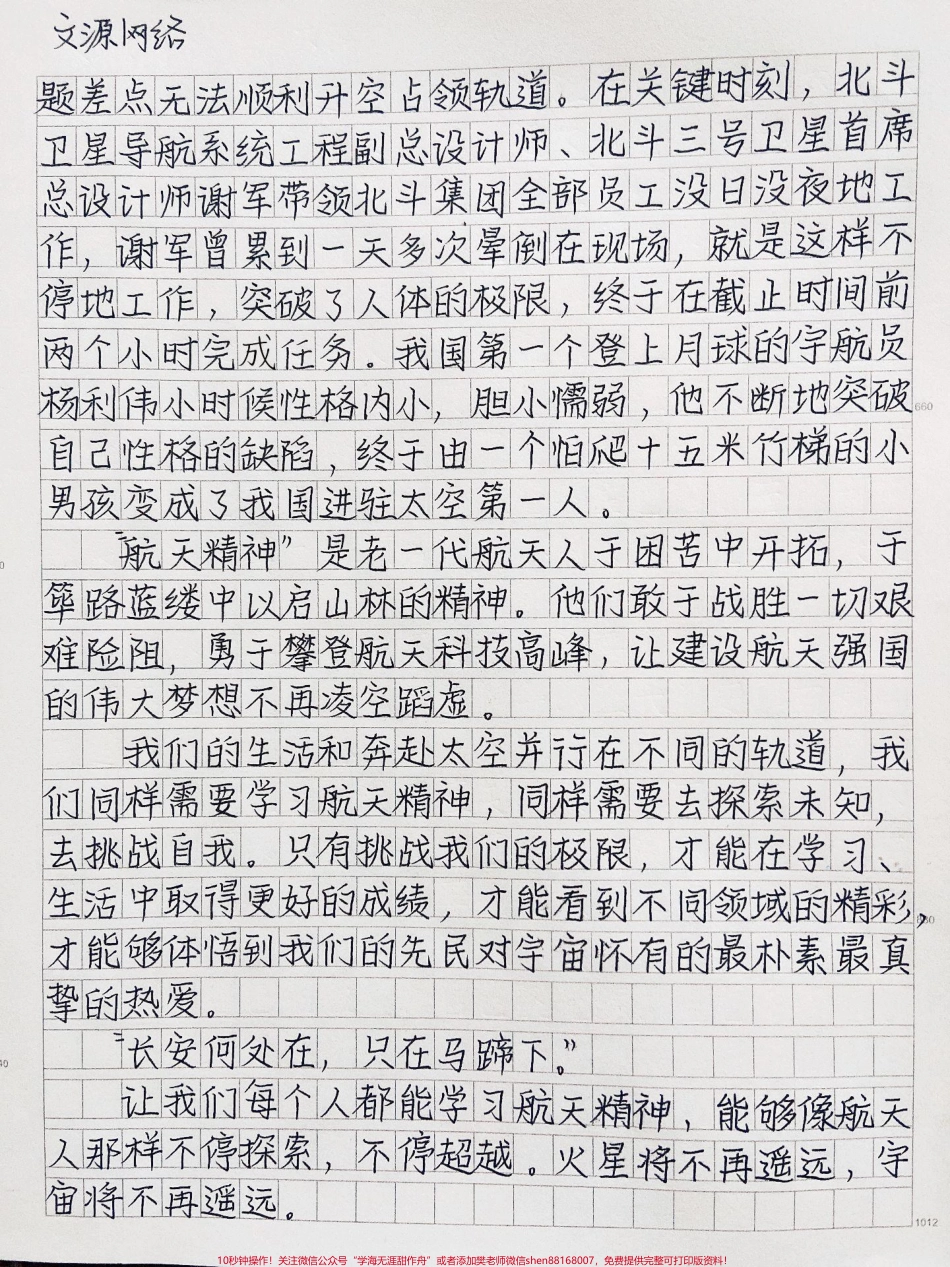 文源网络
题差点无法顺利升空占领轨道。在关键时刻，北斗
卫星导航系统工程副总设计师、北斗三号卫星首席
总设计师谢军带领北斗集团全部员工没日没夜地工
作，谢军曾累到一天多次晕倒在现场，就是这样不
停地工作，突破了人体的极限，终于在截止时间前
两个小时完成任务。我国第一个登上月球的宇航员
杨利伟小时候性格内小，胆小懦弱，他不断地突破
660
自己性格的缺陷，终于由一个怕爬十五米竹梯的小
男孩变成了我国进驻太空第一人。
“航天精神”是老一代航天人于困苦中开拓，于
筚路蓝缕中以启山林的精神。他们敢于战胜一切艰
难险阻，勇于攀登航天科技高峰，让建设航天强国
的伟大梦想不再凌空蹈虚。
我们的生活和奔赴太空并行在不同的轨道，我
们同样需要学习航天精神，同样需要去探索未知，
去挑战自我。只有挑战我们的极限，才能在学习、
生活中取得更好的成绩，才能看到不同领域的精彩，
才能够体悟到我们的先民对宇宙怀有的最朴素最真
挚的热爱。
“长安何处在，只在马蹄下。”
让我们每个人都能学习航天精神，能够像航天
人那样不停探索，不停超越。火星将不再遥远，宇
宙将不再遥远。
1012
10秒钟操作！关注微信公众号“学海无涯甜作舟”或者添加樊老师微信shen88168007，免费提供完整可打印版资料！